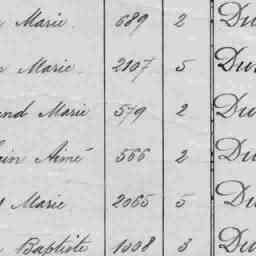 Marie 689 2 Du
Marie 2107 5 Du
and Marie 579 2 Du
Aimé 566 2 Du
Marie 2065 5 Du
Baptiste 1008 3 Du